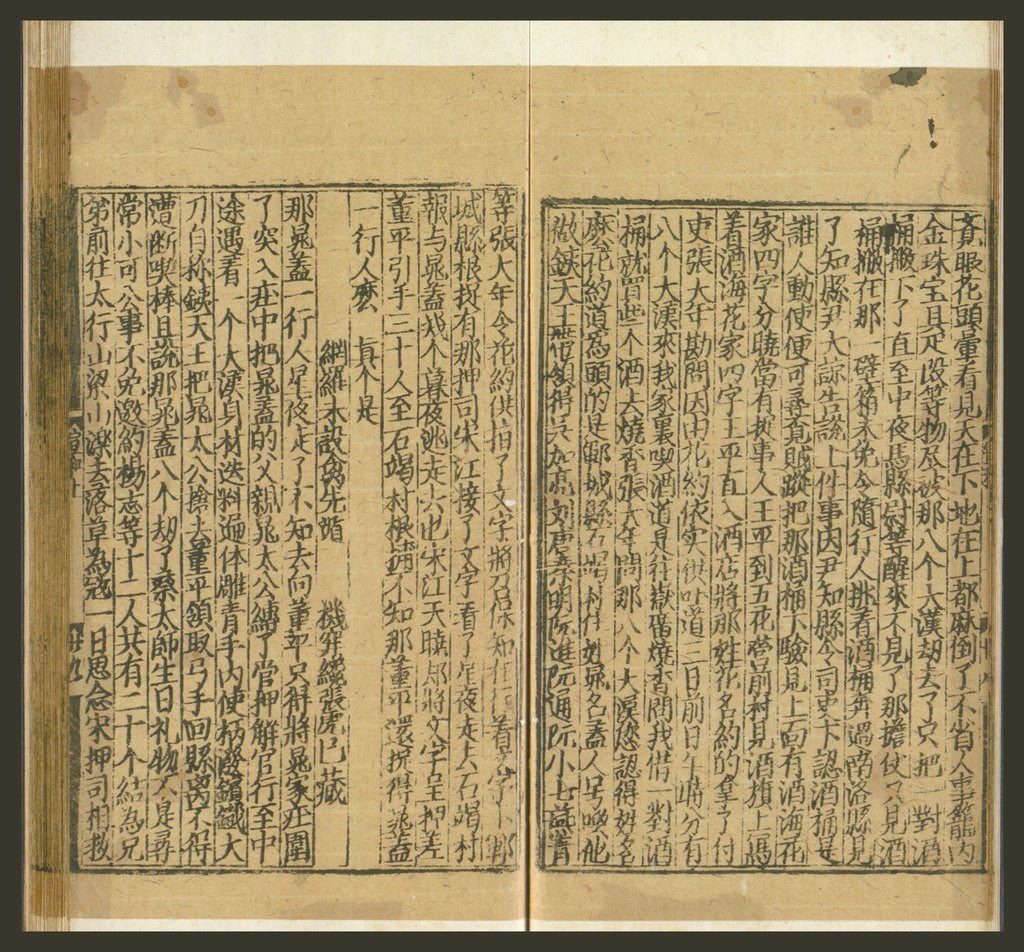 眼花頭暈看見天在下地在上都麻倒了不省人事籠內
金珠宝貝疋段等物尽被那八个大漢劫去了只把一對酒
桶撇下了直至中夜馬縣尉等醒來不見了那擔仗只見酒
桶撇在那一壁箱未免令隨行人挑着酒桶奔過南洛縣見
了知縣尹大諒告說上件事因尹知縣令司吏卞認酒桶是
誰人動使便可尋覓賊蹤把那酒桶下驗見上面有酒海花
家四字分曉當有捉事人王平到五花營前村見酒旗上寫
着酒海花家四字王平直入酒店將那姓花名約的拿了付
吏張大年勘問因由花約依实供吐道三日前日午時分有
八个大漢來我家裏喫酒道是往嶽庿燒香問我借一對酒
桶就買些个酒去燒香張大年問那八个大漢您認得姓名
麼花約道為頭的是鄆城縣石碣村住姓晁名盖人号喚他
做鉄天王帶領得吳加亮刘唐秦明阮進阮通阮小七燕青
等張大年令花約供指了文字將召保知在行着文字下鄆
城縣根捉有那押司宋江接了文字看了星夜走去石碣村
報与晁盖幾个暮夜逃走去也宋江天曉却將文字呈押差
董平引手三十人至石碣村根捕不知那董平還捉得晁盖
一行人麽 真个是
網羅未設禽先遁 機穽纔張虎已藏
那晁盖一行人星夜走了不知去向董平只得將晁家庄圍
了突入庄中把晁盖的父親晁太公縛了管押解官行至中
途遇着一个大漢身材迭料遍体雕青手內使柄潑鑌鐵大
刀自称鉄天王把晁太公搶去董平領取弓手回縣离不得
遭断喫棒且說那晁盖八个劫了蔡太師生日礼物不是尋
常小可公事不免邀約楊志等十二人共有二十个結為兄
弟前往太行山梁山濼去落草為寇一日思念宋押司相救